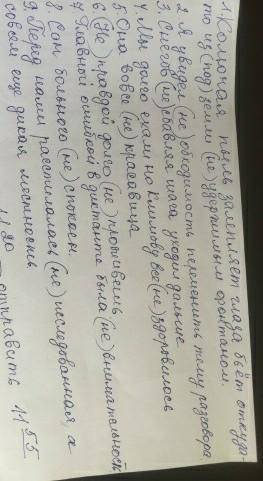 1. Колючая пыль залепляет глаза бьёт откуда-
то из (под) земли (не) удержимым фонтаном.
2 Я увидел (не) обходимость переменить тему разговора
3. Снегов (не) сбавляя шага уходил дальше
4. Мы долго ехали но Климову все (не) здоровилось
5 Она вовсе (не) красавица
6 (Не) правдой долго (не) проживешь
7 Главной ошибкой в диктанте была (не) внимательность
8. Сон больного (не) спокоен
9. Перед нами расстилалась (не) исследованная, а
совсем ещё дикая местность
11 20 — отправить 11 55